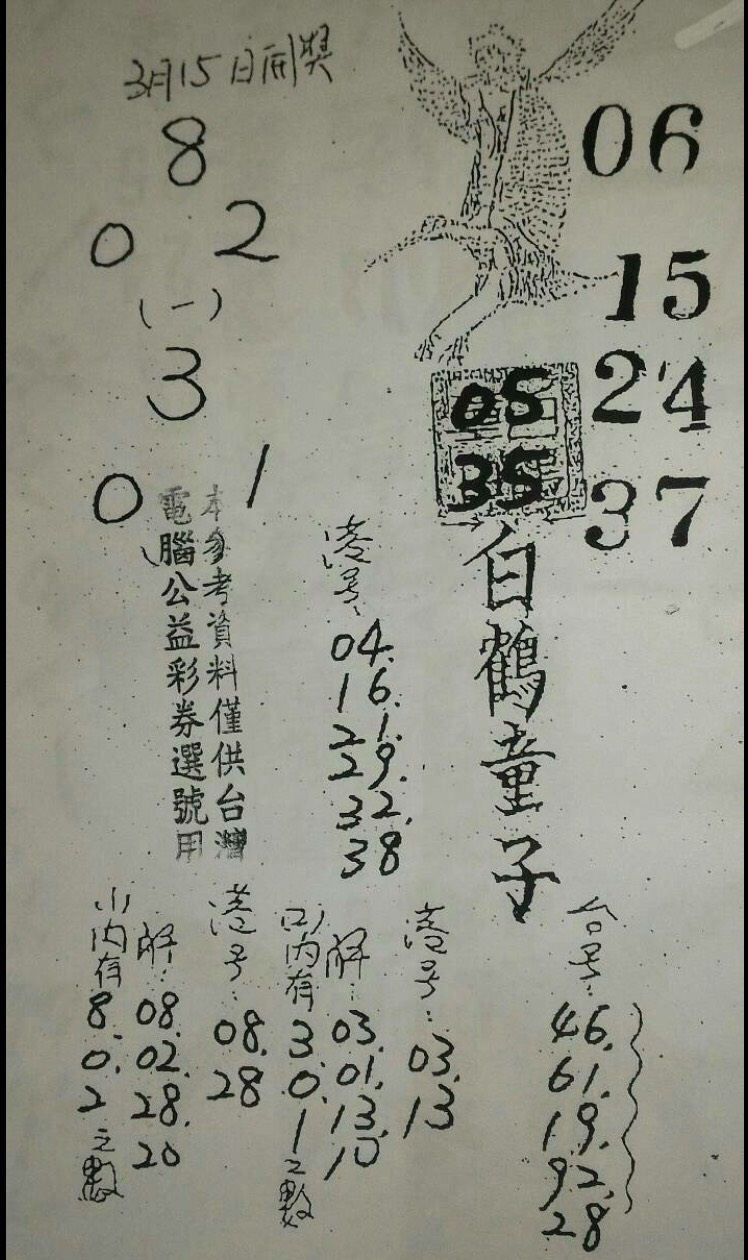 3月15日開獎
8
0 2
(一)
3
0 1
06
15
24
37
05
35
白鶴童子
本參考資料僅供台灣
電腦公益彩券選號用
港号:
04.
16.
21.
29.
32.
38
台号:
46.
61.
19.
92.
28
港号:
03.
13
解:
03.
01.
13.
10
(2)內有
3.
0.
1
之數
港号:
08.
28
解:
08.
02.
28.
20
(1)內有
8.
0.
2
之數